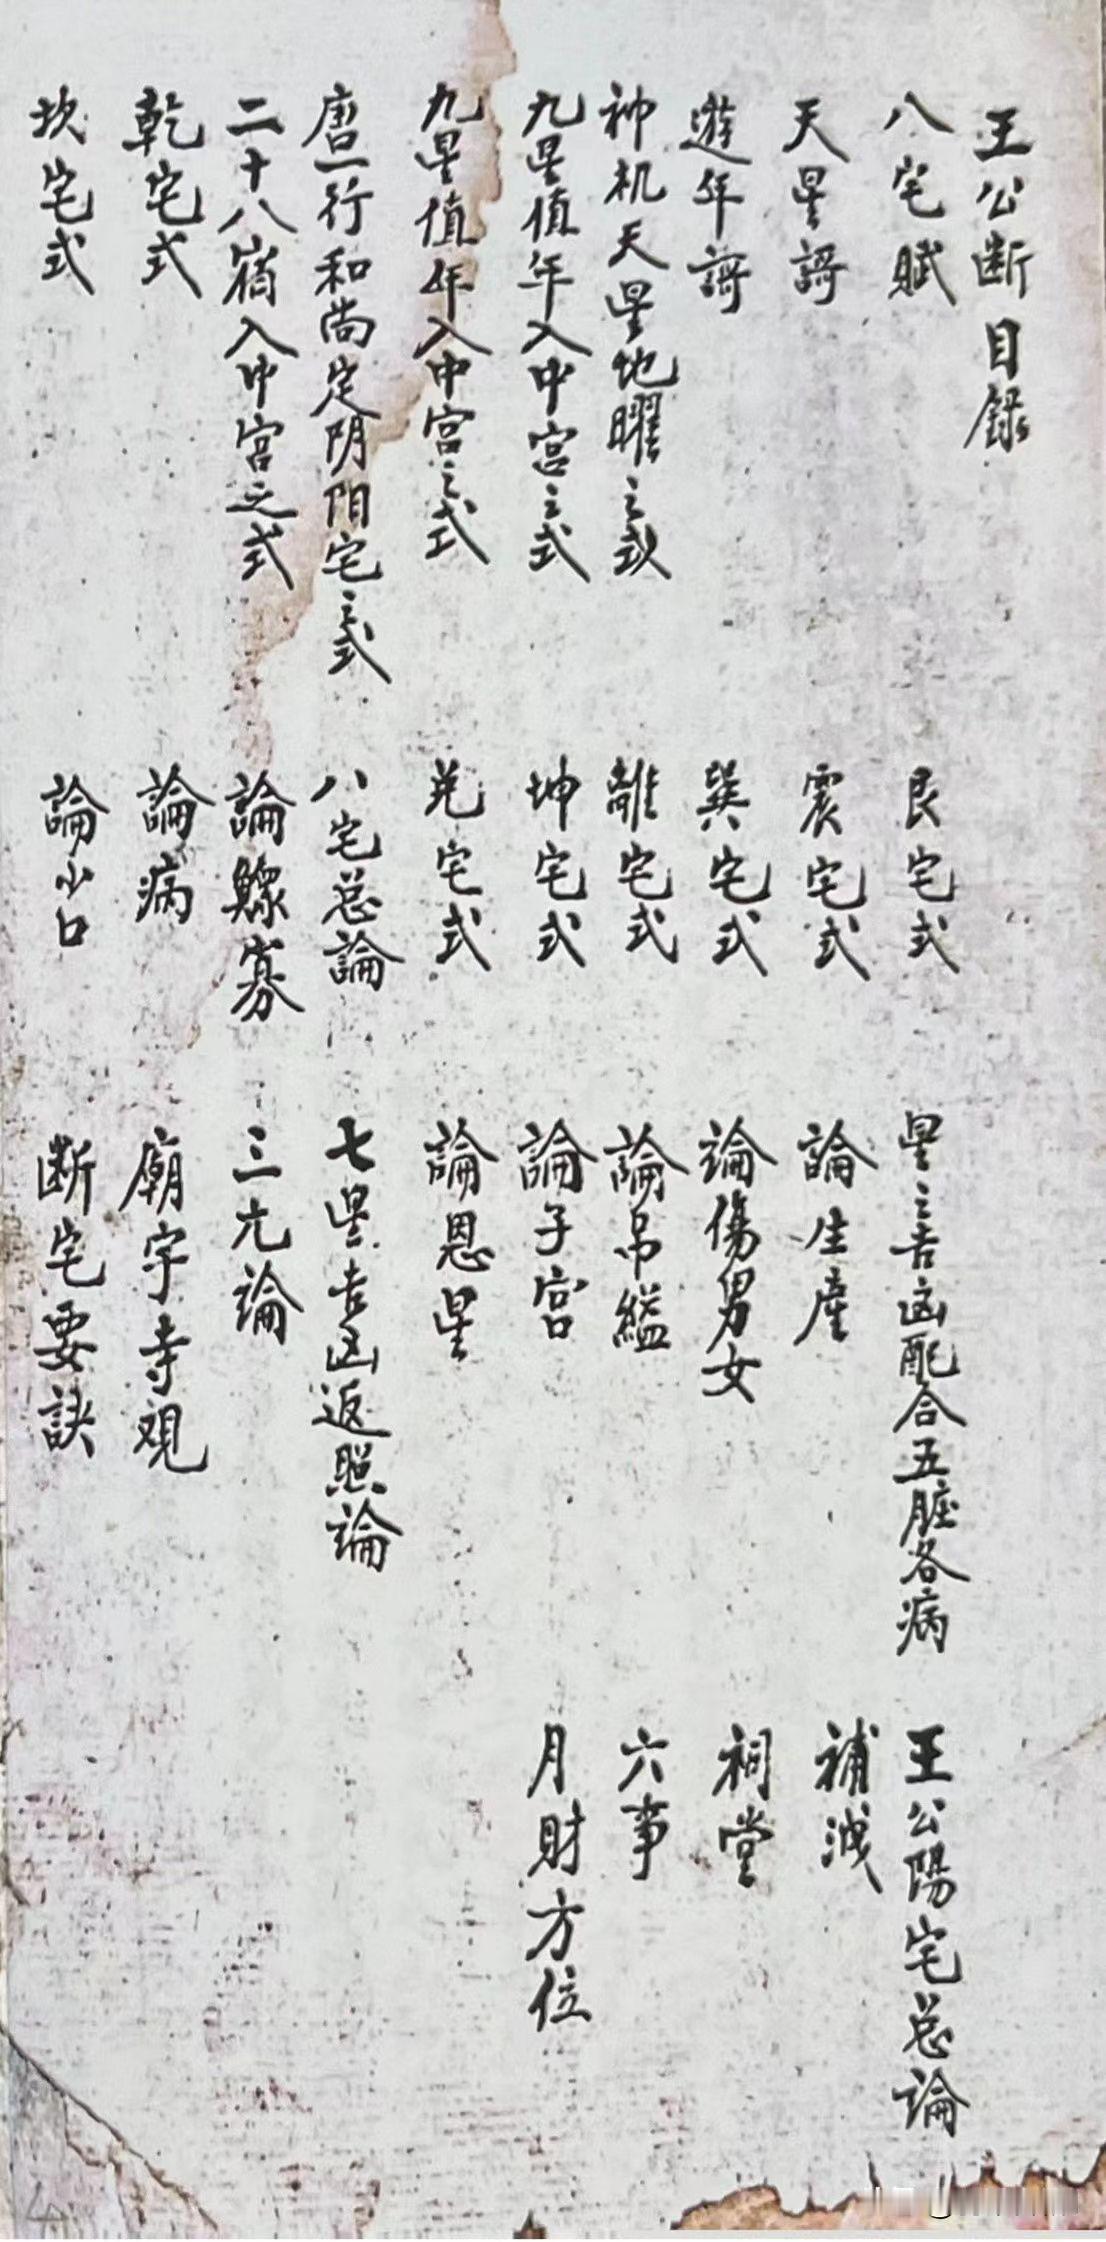 王公断目録
八宅赋
天星謌
遊年謌
神机天星地曜之式
九星值年入中宫之式
九星值年入中宫之式
唐一行和尚定阴阳宅之式
二十八宿入中宫之式
乾宅式
坎宅式
艮宅式
震宅式
巽宅式
離宅式
坤宅式
兑宅式
八宅总論
論鰥寡
論病
論少口
星之吉凶配合五脏各病
論生產
論傷男女
論吊縊
論子宫
論恩星
七星吉凶返照論
三元論
廟宇寺观
断宅要訣
王公陽宅总論
補洩
祠堂
六事
月财方位